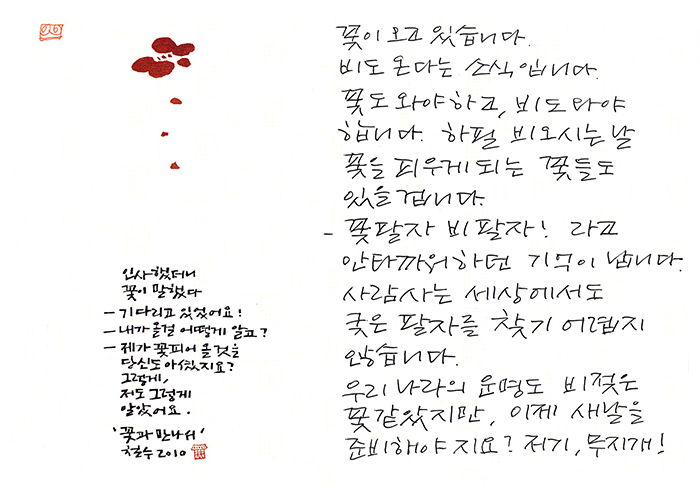 인사했더니
꽃이 말했다
- 기다리고 있었어요!
- 내가 올걸 어떻게 알고?
- 제가 꽃피어 올 것을
당신도 아셨지요?
그렇게,
저도 그렇게
알았어요.
'꽃과 만나서'
철수 2010
꽃이 오고 있습니다.
비도 온다는 소식입니다.
꽃도 와야 하고, 비도 와야
합니다. 하필 비오시는 날
꽃을 피우게 되는 꽃들도
있을 겁니다.
- 꽃팔자 비팔자! 라고
안타까워하던 기억이 납니다.
사람사는 세상에서도
궂은 팔자를 찾기 어렵지
않습니다.
우리 나라의 운명도 비젖은
꽃같았지만, 이제 새날을
준비해야지요? 저기, 무지개!